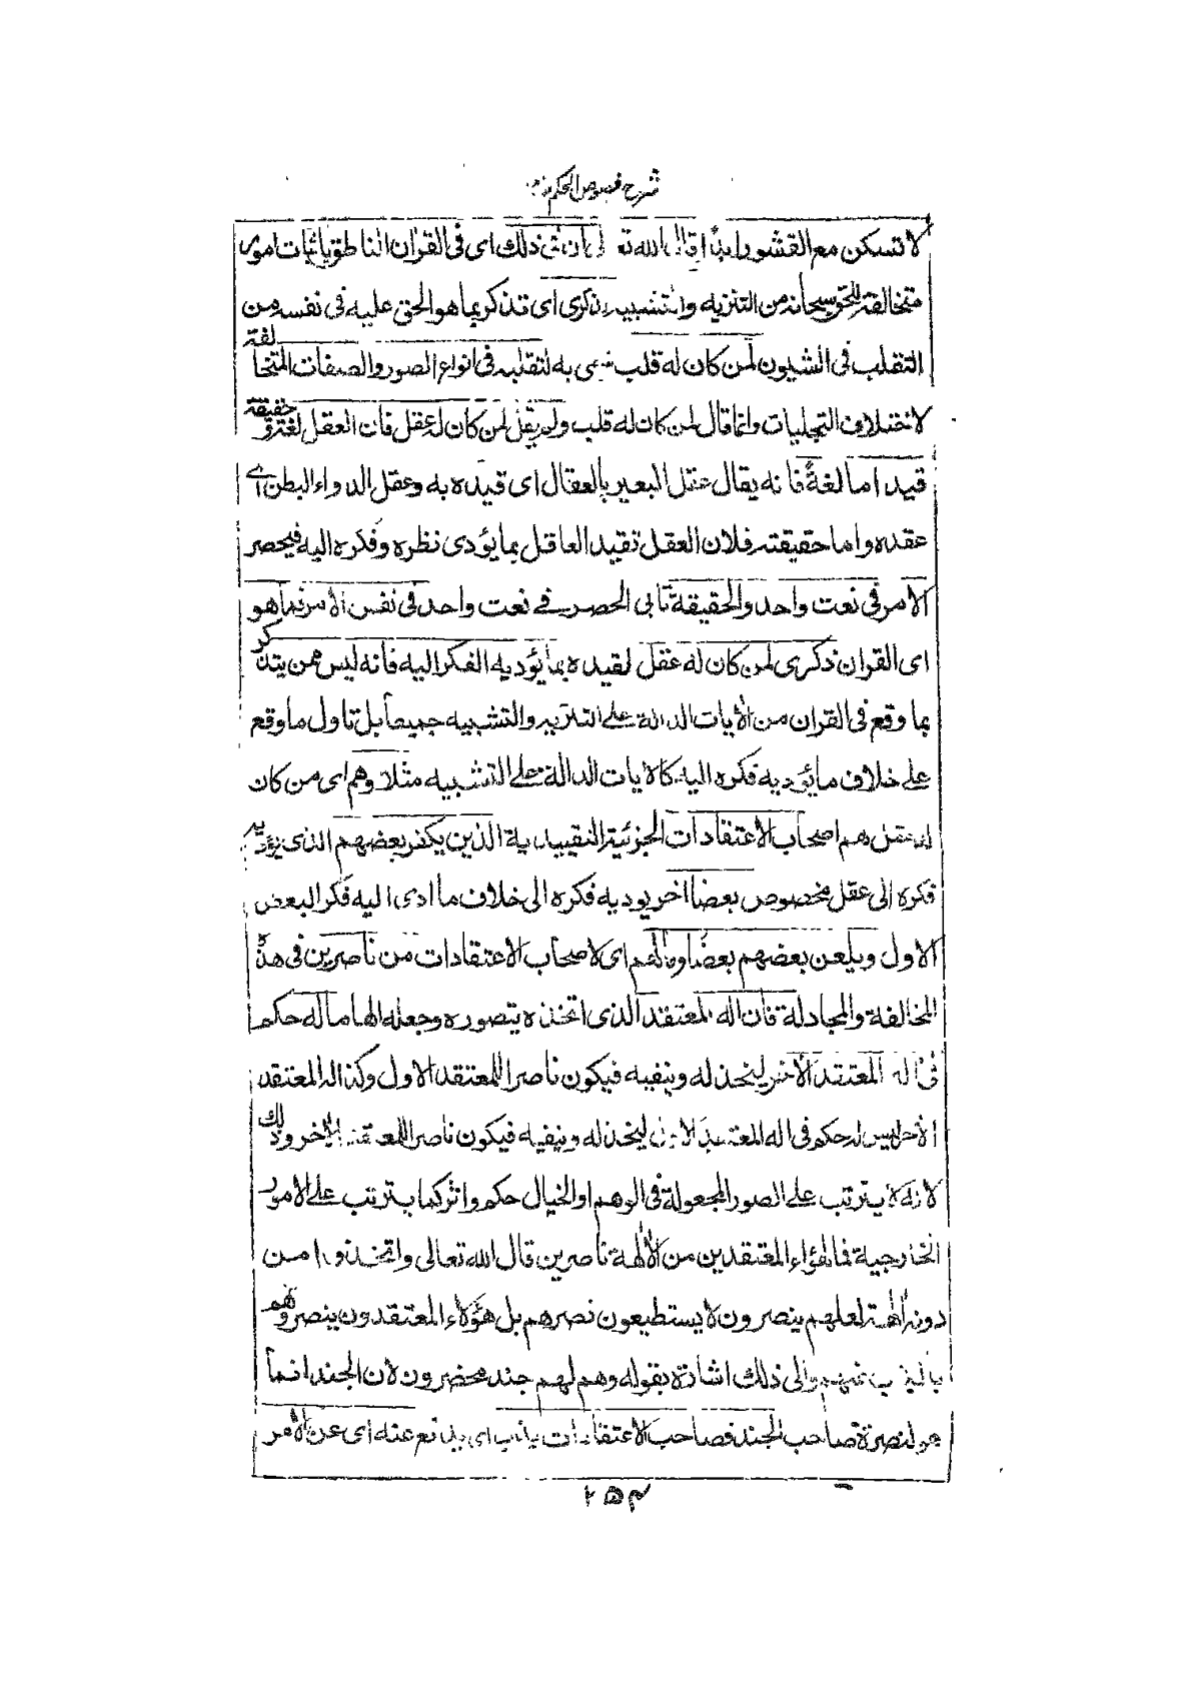 شرح فصوص الحكم
لا تسكن مع القشور ابدًا قال الله ان فى ذلك اى فى القران الناطق باثبات امور
متخالفة للحق سبحانه من التنزيه والتشبيه لذكرى اى تذكر بما هو الحق عليه فى نفسه من
التقلب فى الشيون لمن كان له قلب سمى به لتقلبه فى انواع الصور والصفات المتخالفة
لاختلاف التجليات وانما قال لمن كان له قلب ولم يقل لمن كان له عقل فان العقل لغة وحقيقة
قيد اما لغةً فانه يقال عقل البعير بالعقال اى قيده به وعقل الدواء البطن اے
عقده واما حقيقته فلان العقل تقيد العاقل بما يؤدى نظره وفكره اليه فيحصر
الامر فى نعت واحد والحقيقة تابى الحصر فے نعت واحد فى نفس الامر فما هو
اى القران ذكرى لمن كان له عقل لقيده بما يؤديه الفكر اليه فانه ليس ممن يتذكر
بما وقع فى القران من الأيات الدالة على التنزيه والتشبيه جميعاً بل تاول ما وقع
على خلاف ما يؤديه فكره اليه كالايات الدالة على التشبيه مثلا وهم اى من كان
له عقل هم اصحاب الاعتقادات الجزئية التقييدية الذين يكفر بعضهم الذى يؤديه
فكره الى عقل مخصوص بعضا اخر يوديه فكره الى خلاف ما ادى اليه فكر البعض
الاول ويلعن بعضهم بعضًا وما لهم اى لاصحاب الاعتقادات من ناصرين فى هذه
المخالفة والمجادلة فان اله المعتقد الذى اتخذه بتصوره وجعله الها ما له حكم
فى اله المعتقد الأخر ليخذله وينفيه فيكون ناصرا للمعتقد الاول وكذا اله المعتقد
الأخر ليس له حكم فى اله المعتقد الاول ليخذله وينفيه فيكون ناصرا للمعتقد الاخر وذلك
لانه لا يترتب على الصور المجعولة فى الوهم او الخيال حكم واثر كما يترتب على الامور
الخارجية فما لهؤلاء المعتقدين من الألهة ناصرين قال الله تعالى واتخذوا من
دونه ألهة لعلهم ينصرون لا يستطيعون نصرهم بل هؤلاء المعتقدون ينصروهم
بالذب عنهم والى ذلك اشارة بقوله وهم لهم جند محضرون لان الجند انما
هو لنصرة صاحب الجند فصاحب الاعتقادات يذب اى يدافع عنه اى عن الامر
۲۵۴